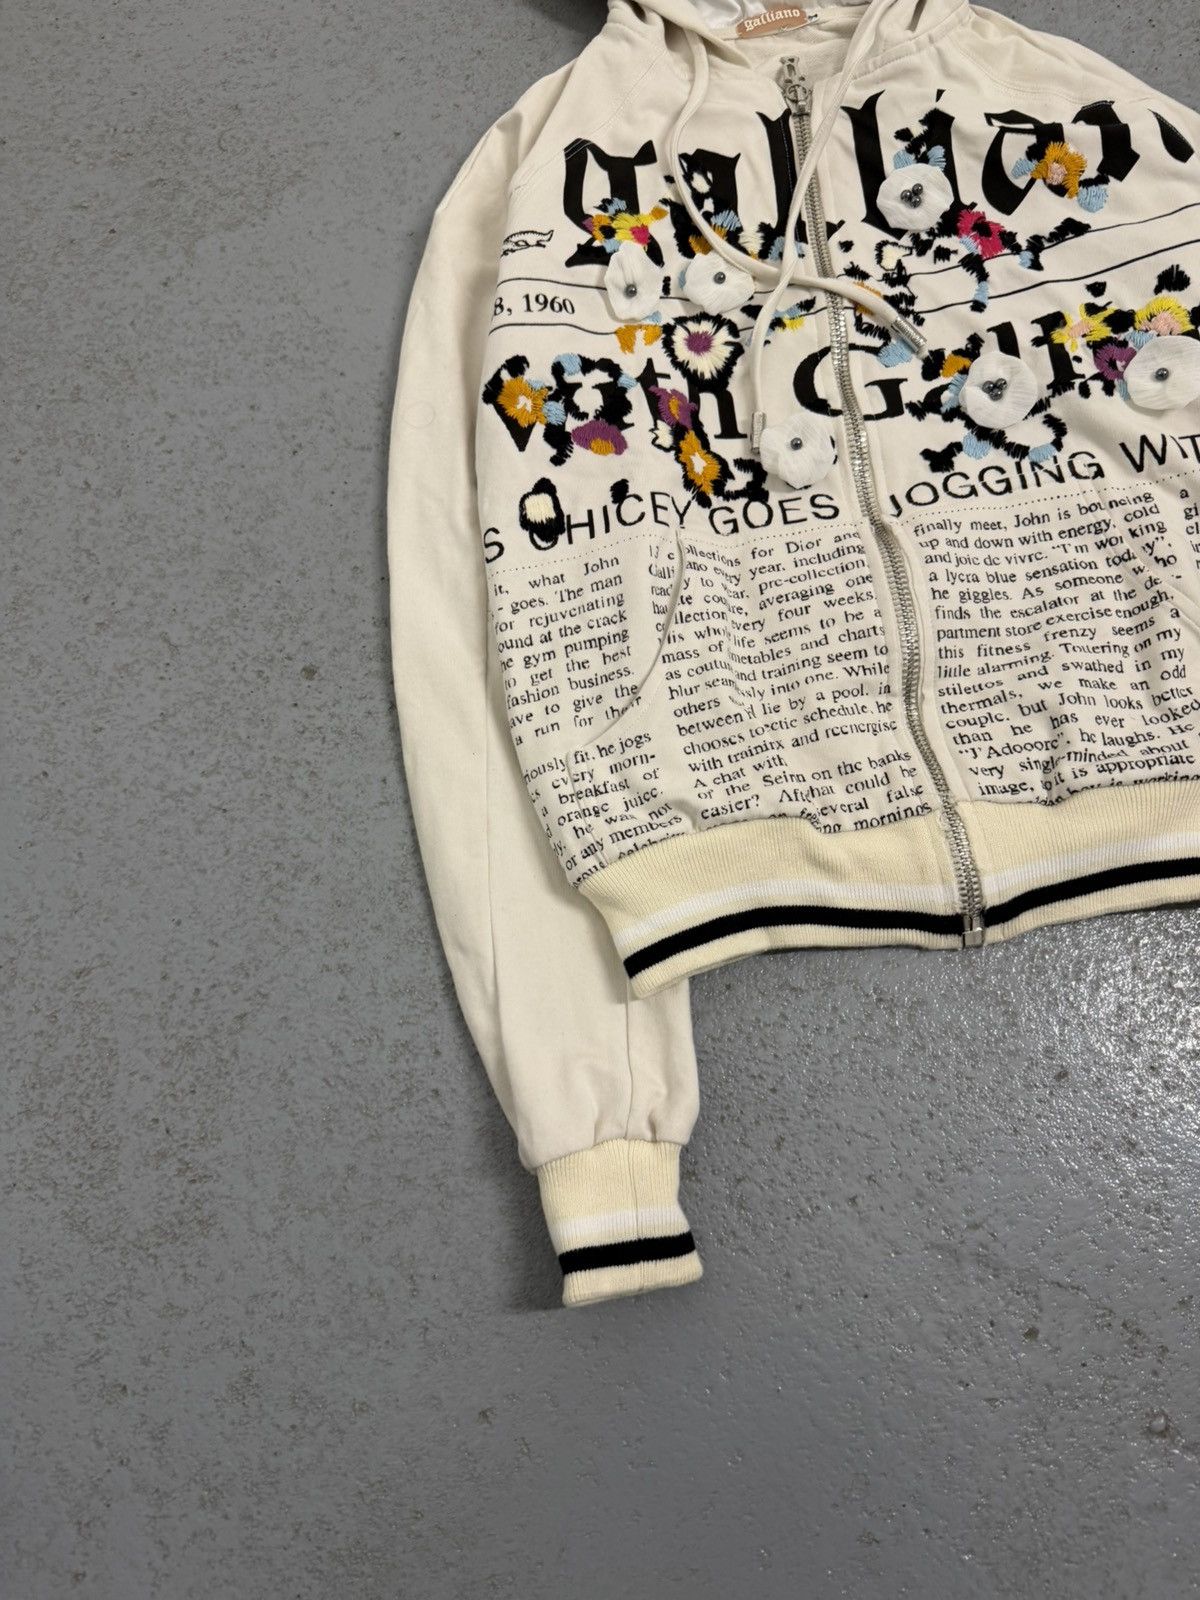 galliano
galliano
8, 1960
with Galli
S CHICEY GOES JOGGING WIT
it, what John
goes. The man
for rejuvenating
ound at the crack
he gym pumping
to get the best
fashion business.
ave to give the
a run for their
riously fit, he jogs
s every morn-
a breakfast of
d orange juice.
ly, he was not
or any members
collections for Dior and
Galliano every year, including
ready to wear, pre-collection,
haute couture, averaging one
collection every four weeks.
His whole life seems to be a
mass of timetables and charts
as couture and training seem to
blur seamlessly into one. While
others lie by a pool, in
between
chooses to schedule, he
with training and reenergise
A chat with
of the Seine on the banks
easier? After that could be
several false
mornings
finally meet, John is bouncing
up and down with energy, cold
and joie de vivre. "I'm working
a lycra blue sensation today",
he giggles. As someone who
finds the escalator at the de-
partment store exercise enough,
this fitness frenzy seems a
little alarming. Towering on my
stilettos and swathed in my
thermals, we make an odd
couple, but John looks better
than he has ever looked.
"J'Adooore", he laughs. He
very single-minded about
image, it is appropriate